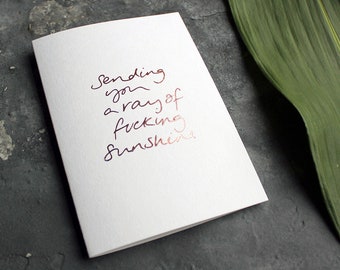 sending
you
a ray of
fucking
sunshine